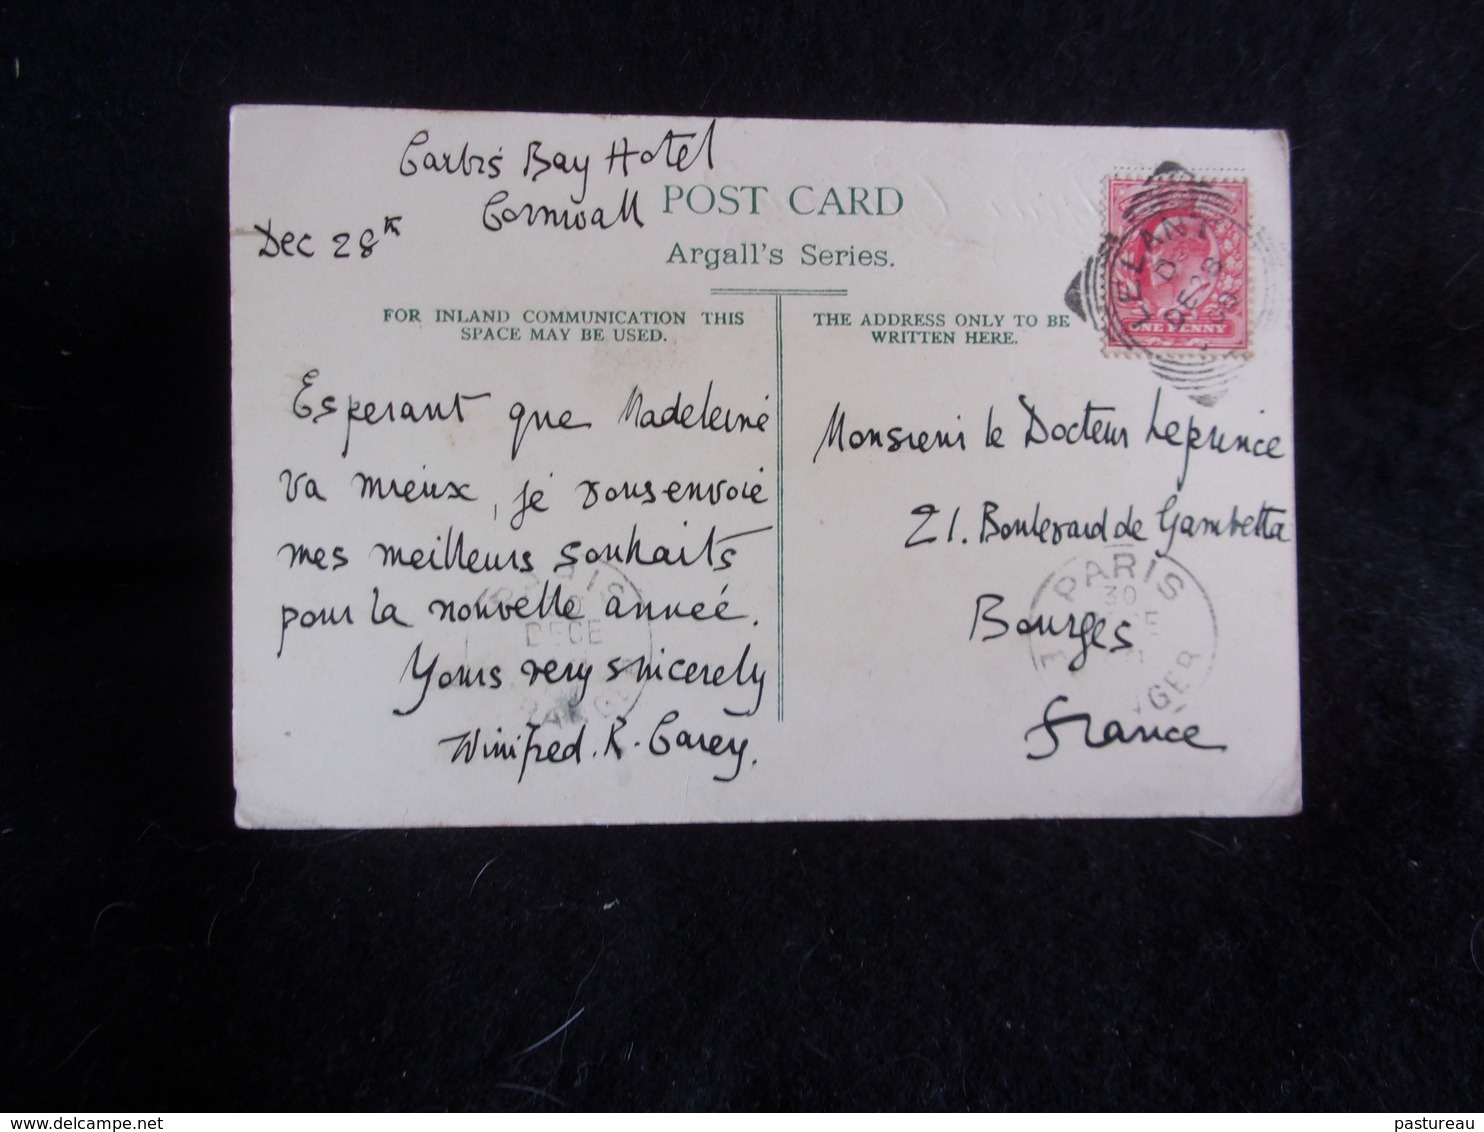 Carbis Bay Hotel
Cornwall
Dec 28th
POST CARD
Argall's Series.
FOR INLAND COMMUNICATION THIS
SPACE MAY BE USED.
THE ADDRESS ONLY TO BE
WRITTEN HERE.
LELANT
DE 28
ONE PENNY
Esperant que Madeleine
va mieux, je vous envoie
mes meilleurs souhaits
pour la nouvelle année.
Yours very sincerely
Winifred. R. Carey.
Monsieur le Docteur Leprince
21. Boulevard de Gambetta
Bourges
France
PARIS
30
PARIS
DECE
pastureau